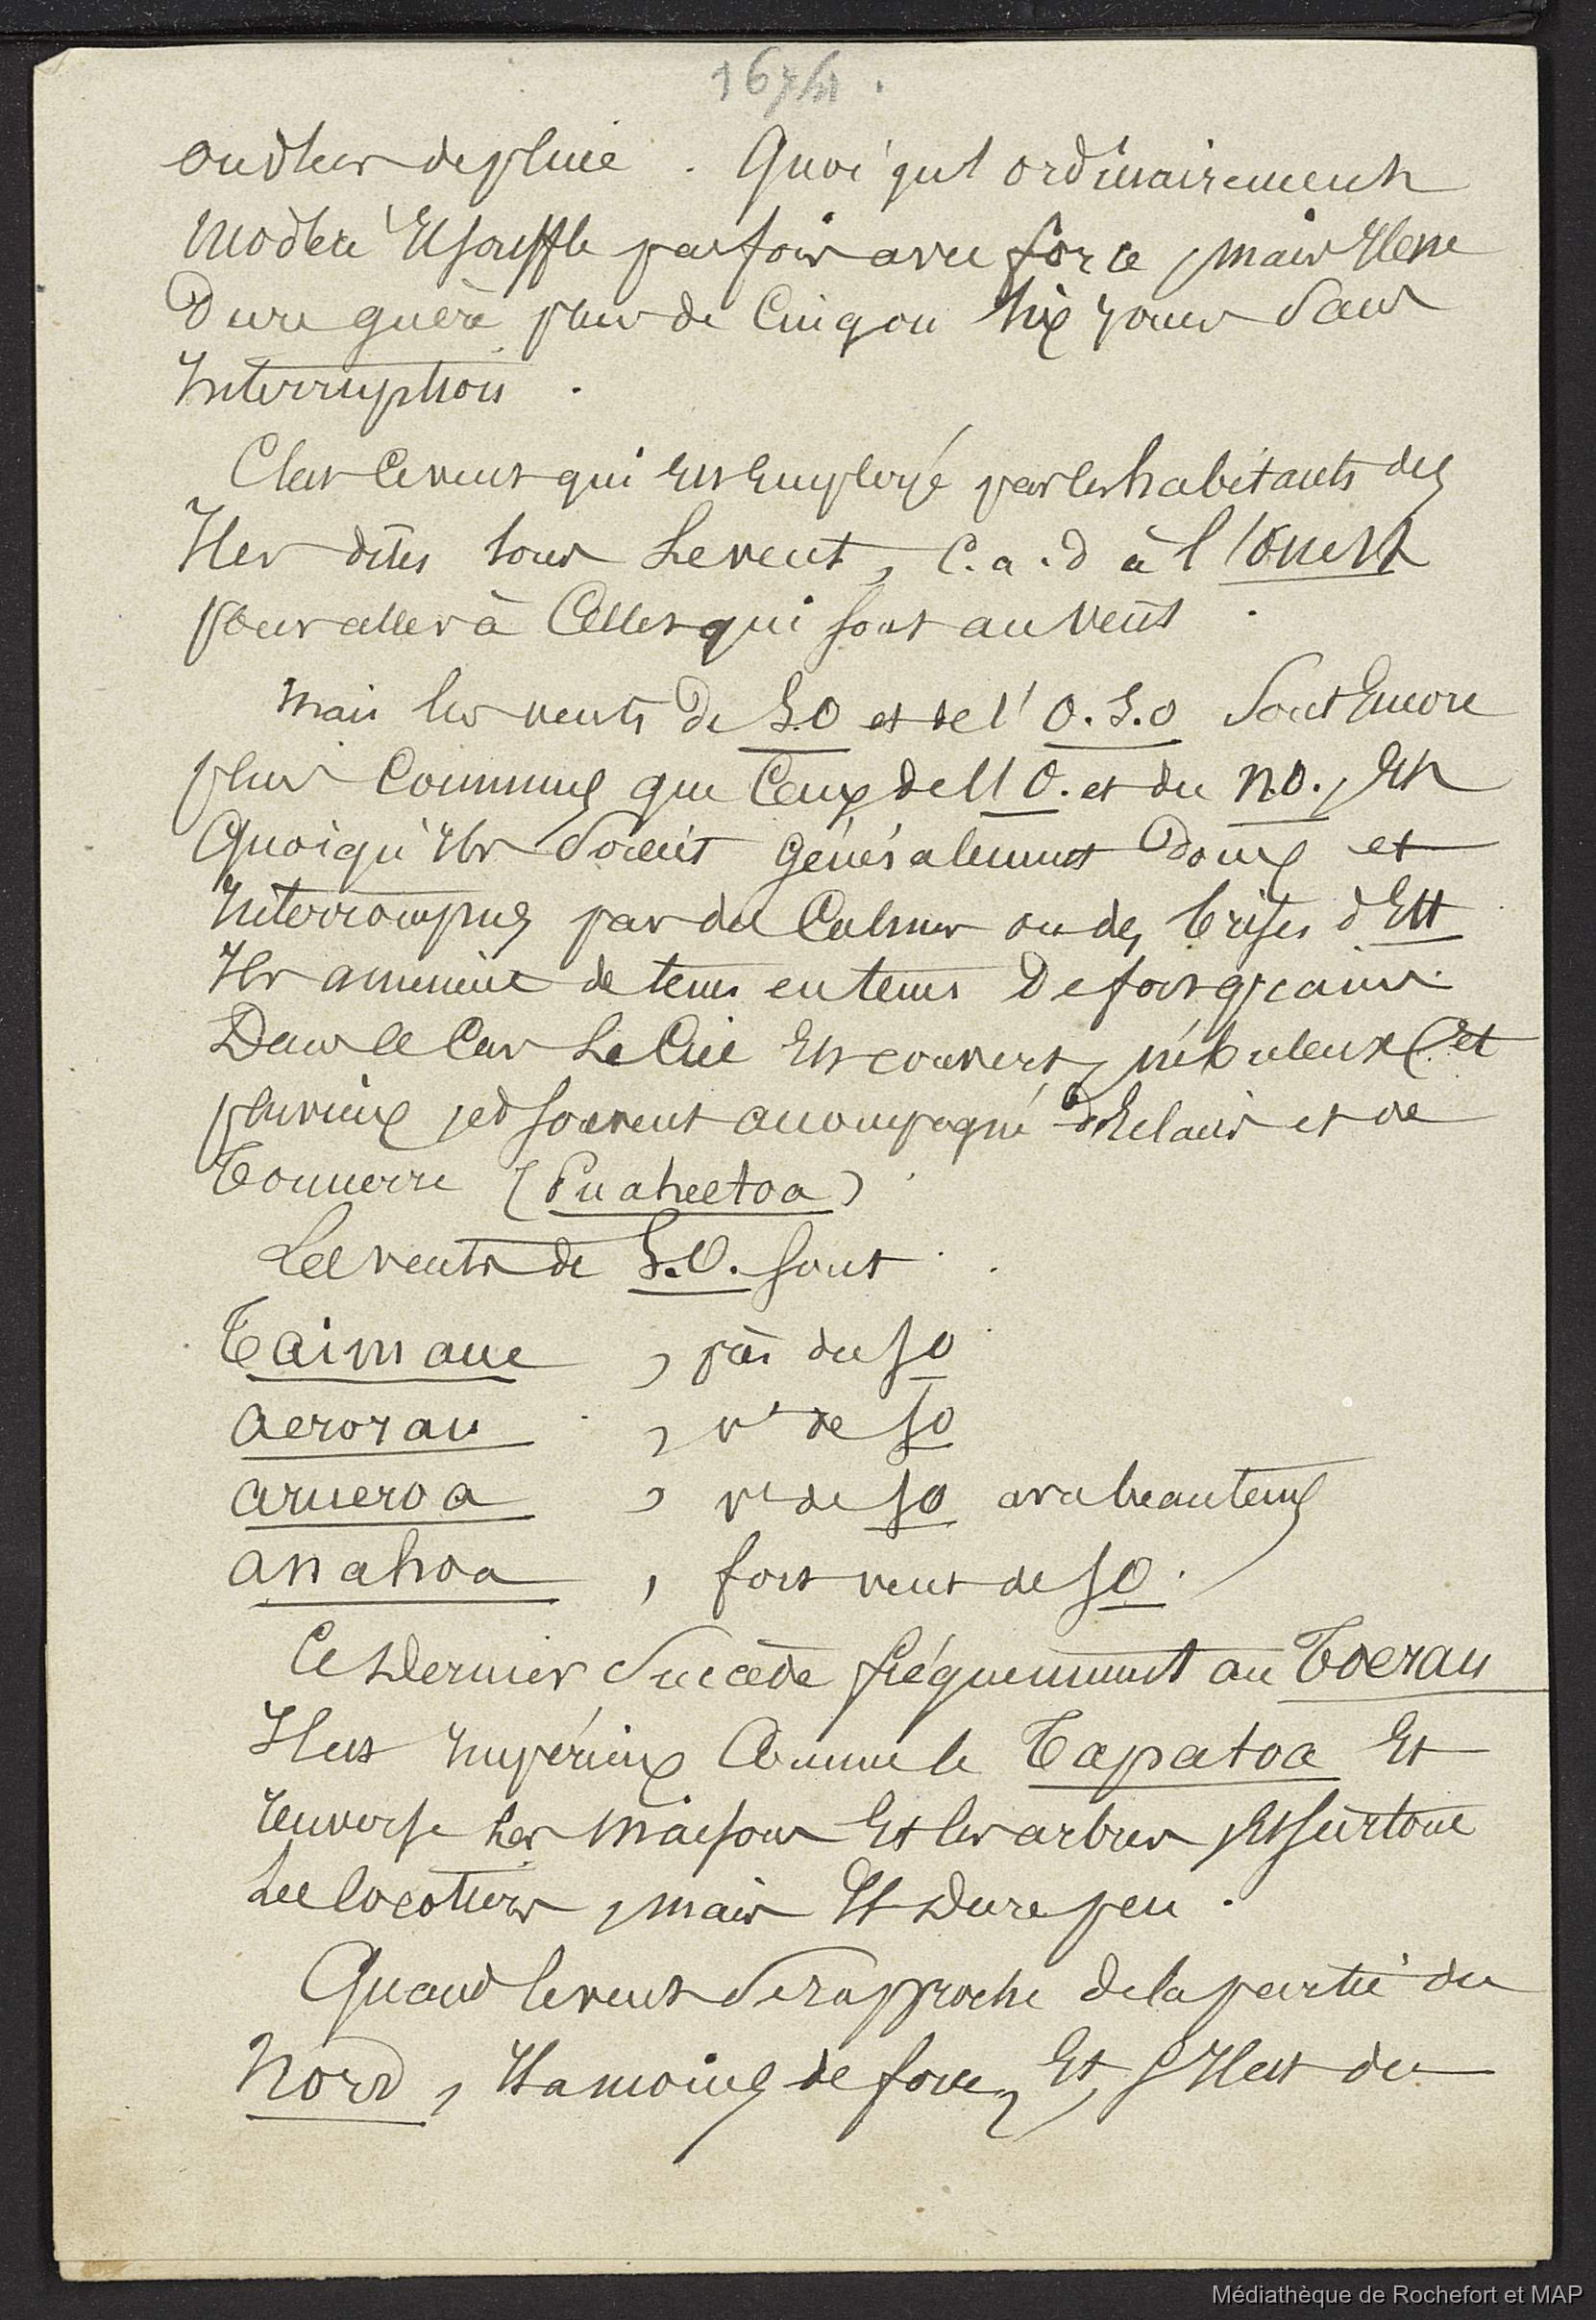 1674.
ondées de pluie. Quoiqu'il ordinairement
modéré Il souffle parfois avec force, mais Il ne
Dure guère plus de Cinq ou Six jours Sans
Interruption.
C'est Ce vent qui est Employé par les habitants des
Iles dites Sous Le vent, C. a. d à l'Ouest
pour aller à Celles qui sont au vent.
Mais les vents de S.O et de l'O.S.O Sont Encore
plus Communs que Ceux de l'O. et du N.O., Et
Quoiqu'Ils Soient généralement Doux et
Interrompus par des Calmes ou des brises d'Est
Ils amènent de tems en tems De forts grains.
Dans ce Cas Le Ciel Est couvert, nébuleux et
pluvieux, et souvent acompagné d'Eclairs et de
Tonnerre (Puaheetoa)
Les vents de S.O. sont
Taimaue, près du SO
aerorau, vt de SO
arueroa, vt de SO avec beau tems
anahoa, fort vent de SO.
Ce Dernier Succède fréquemment au Toerau
Il est Impérieux Comme le Tapatoa Et
renverse Les Maisons Et les arbres, Et surtout
Les Cocotiers, mais Il Dure peu.
Quand le vent Se rapproche de la partie du
Nord, Il a moins de force, Et s'Il est du
Médiathèque de Rochefort et MAP